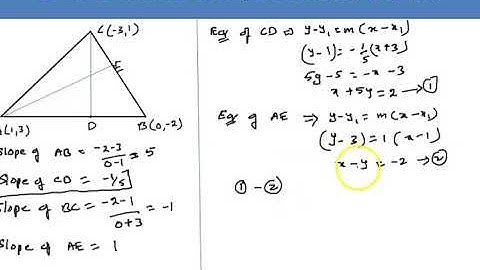 C(-3,1)
E
A(1,3)
D
B(0,-2)
Slope of AB = -2-3/0-1 = 5
Slope of CD = -1/5
Slope of BC = -2-1/0+3 = -1
Slope of AE = 1
Eqn of CD ⇒ y-y₁=m(x-x₁)
(y-1)=-1/5(x+3)
5y-5=-x-3
x+5y=2 → ①
Eqn of AE ⇒ y-y₁=m(x-x₁)
(y-3)=1(x-1)
x-y=-2 → ②
①-②